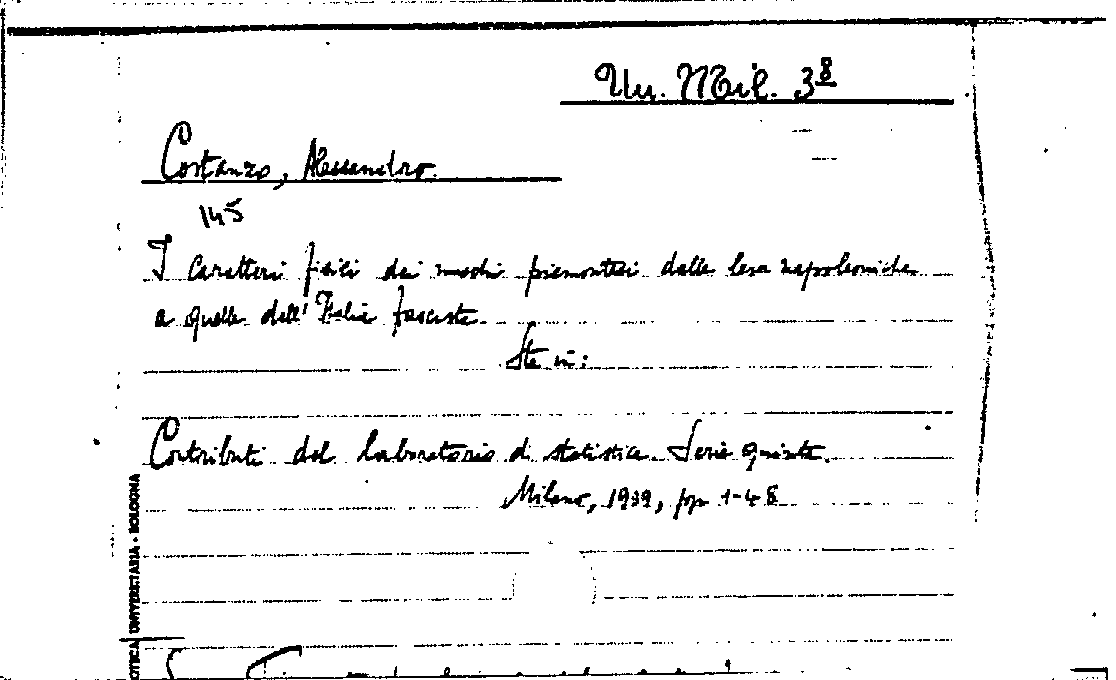 Un. Mil. 38
Costanzo, Alessandro.
145
I caratteri fisici dei maschi piemontesi dalle leve napoleoniche
a quelle dell'Italia fascista.
Sta in:
Contributi del laboratorio di statistica. Serie quinta.
Milano, 1939, pp 1-48
UNIVERSITARIA - BOLOGNA